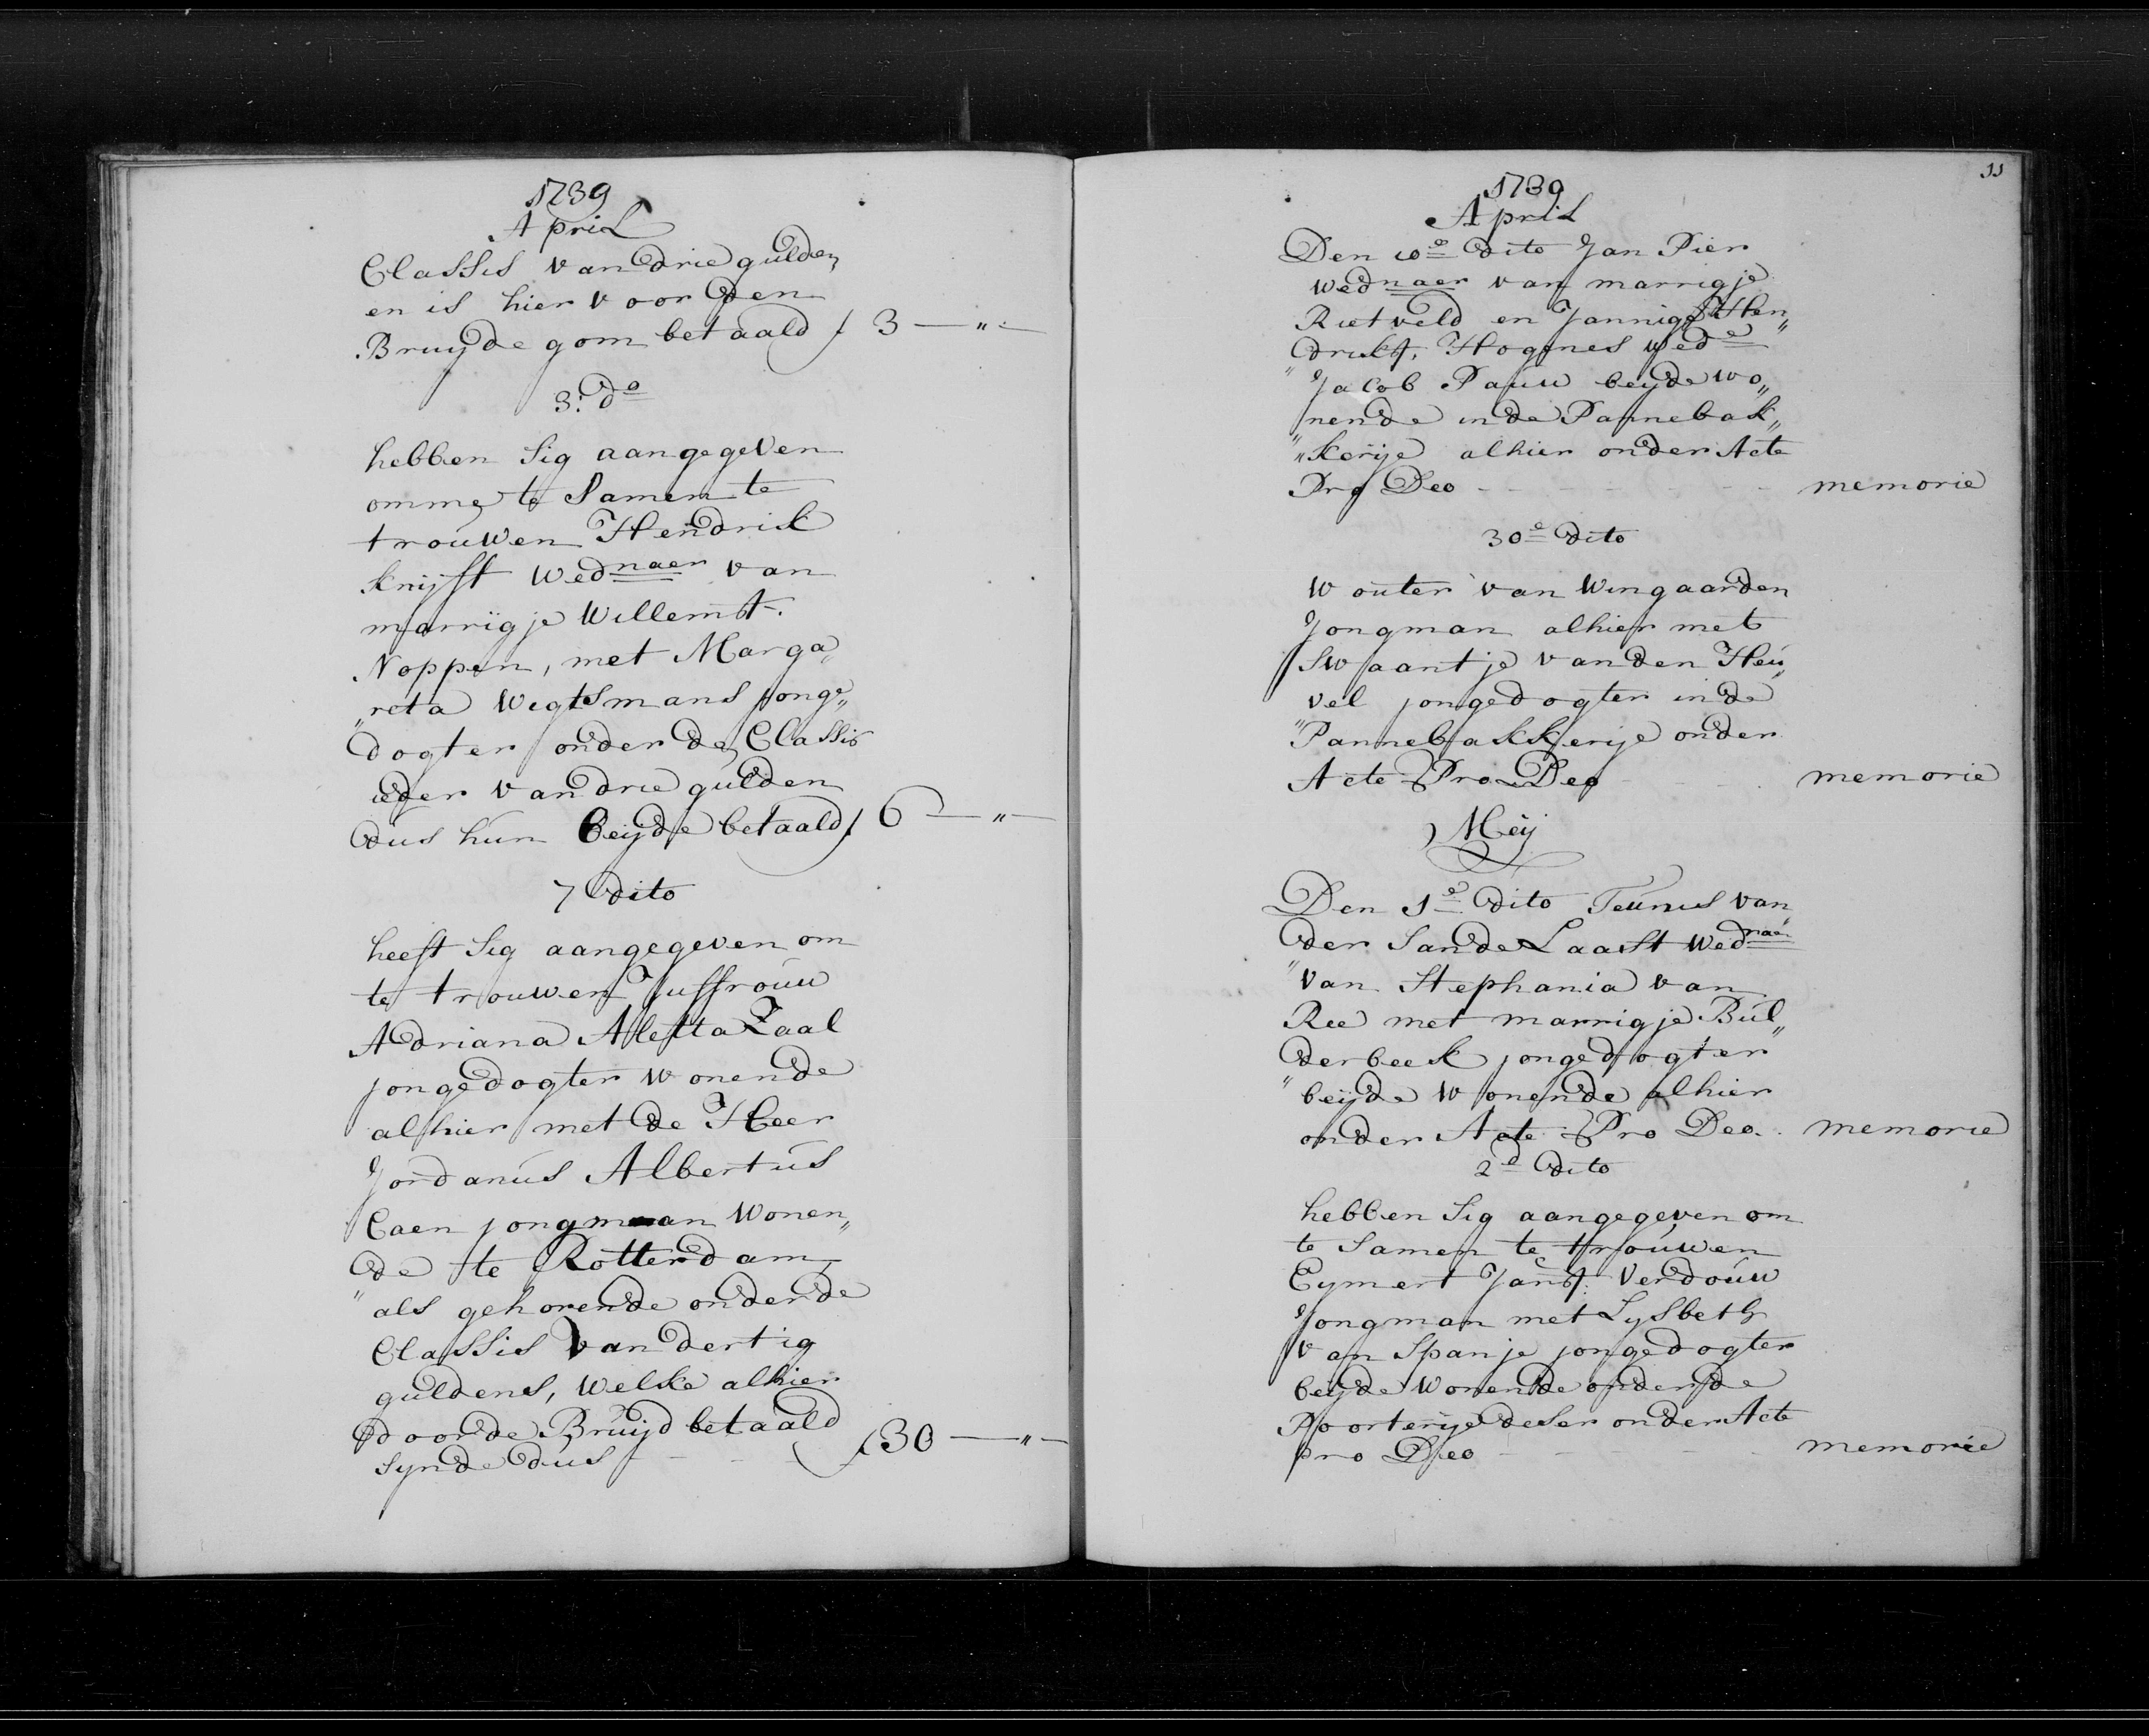 1739
April
Classis van drie gulden
en is hier voor den
Bruydegom betaald ƒ 3 — " —
3: do
hebben sig aangegeven
omme te samen te
trouwen Hendrik
Knijff wednaer van
marrigje Willemst.
Noppen, met Marga„
„reta Wegtsmans jonge„
dogter onder de Classis
ieder van drie gulden
dus hun beijde betaald ƒ 6 — " —
7 dito
heeft sig aangegeven om
te trouwen Juffrouw
Adriana Aletta Zaal
jongedogter wonende
alhier met de Heer
Jordanus Albertus
Caen jongman wonen„
„de te Rotterdam,
als gehorende onder de
Classis van dertig
guldens, welke alhier
door de Bruijd betaald
synde dus - - - ƒ 30 — " —
11
1739
April
Den 10e dito Jan Pier
wednaer van marrigje
Rietveld en Jannigje Hen„
„drikst. Hogenes wede
Jacob Pauw beyde wo„
„nende in de Pannebak„
„kerije alhier onder Acte
Pro Deo - - - - - - memorie
30e dito
Wouter van Wingaarden
Jongman alhier met
Swaantje van den Heu„
„vel jongedogter in de
Pannebakkerije onder
Acte Pro Deo memorie
Meij
Den 1e dito Teunis van
„der Sande Laast wednaer
van Stephania van
Ree met marrigje Bul„
„derbeek jongedogter
beijde wonende alhier
onder Acte Pro Deo. memorie
2e dito
hebben sig aangegeven om
te samen te trouwen
Eymert Janst. Verdouw
Jongman met Lysbeth
van Spanje jongedogter
beijde wonende onder de
Poorterije deser onder Acte
pro Deo - - - - - - memorie